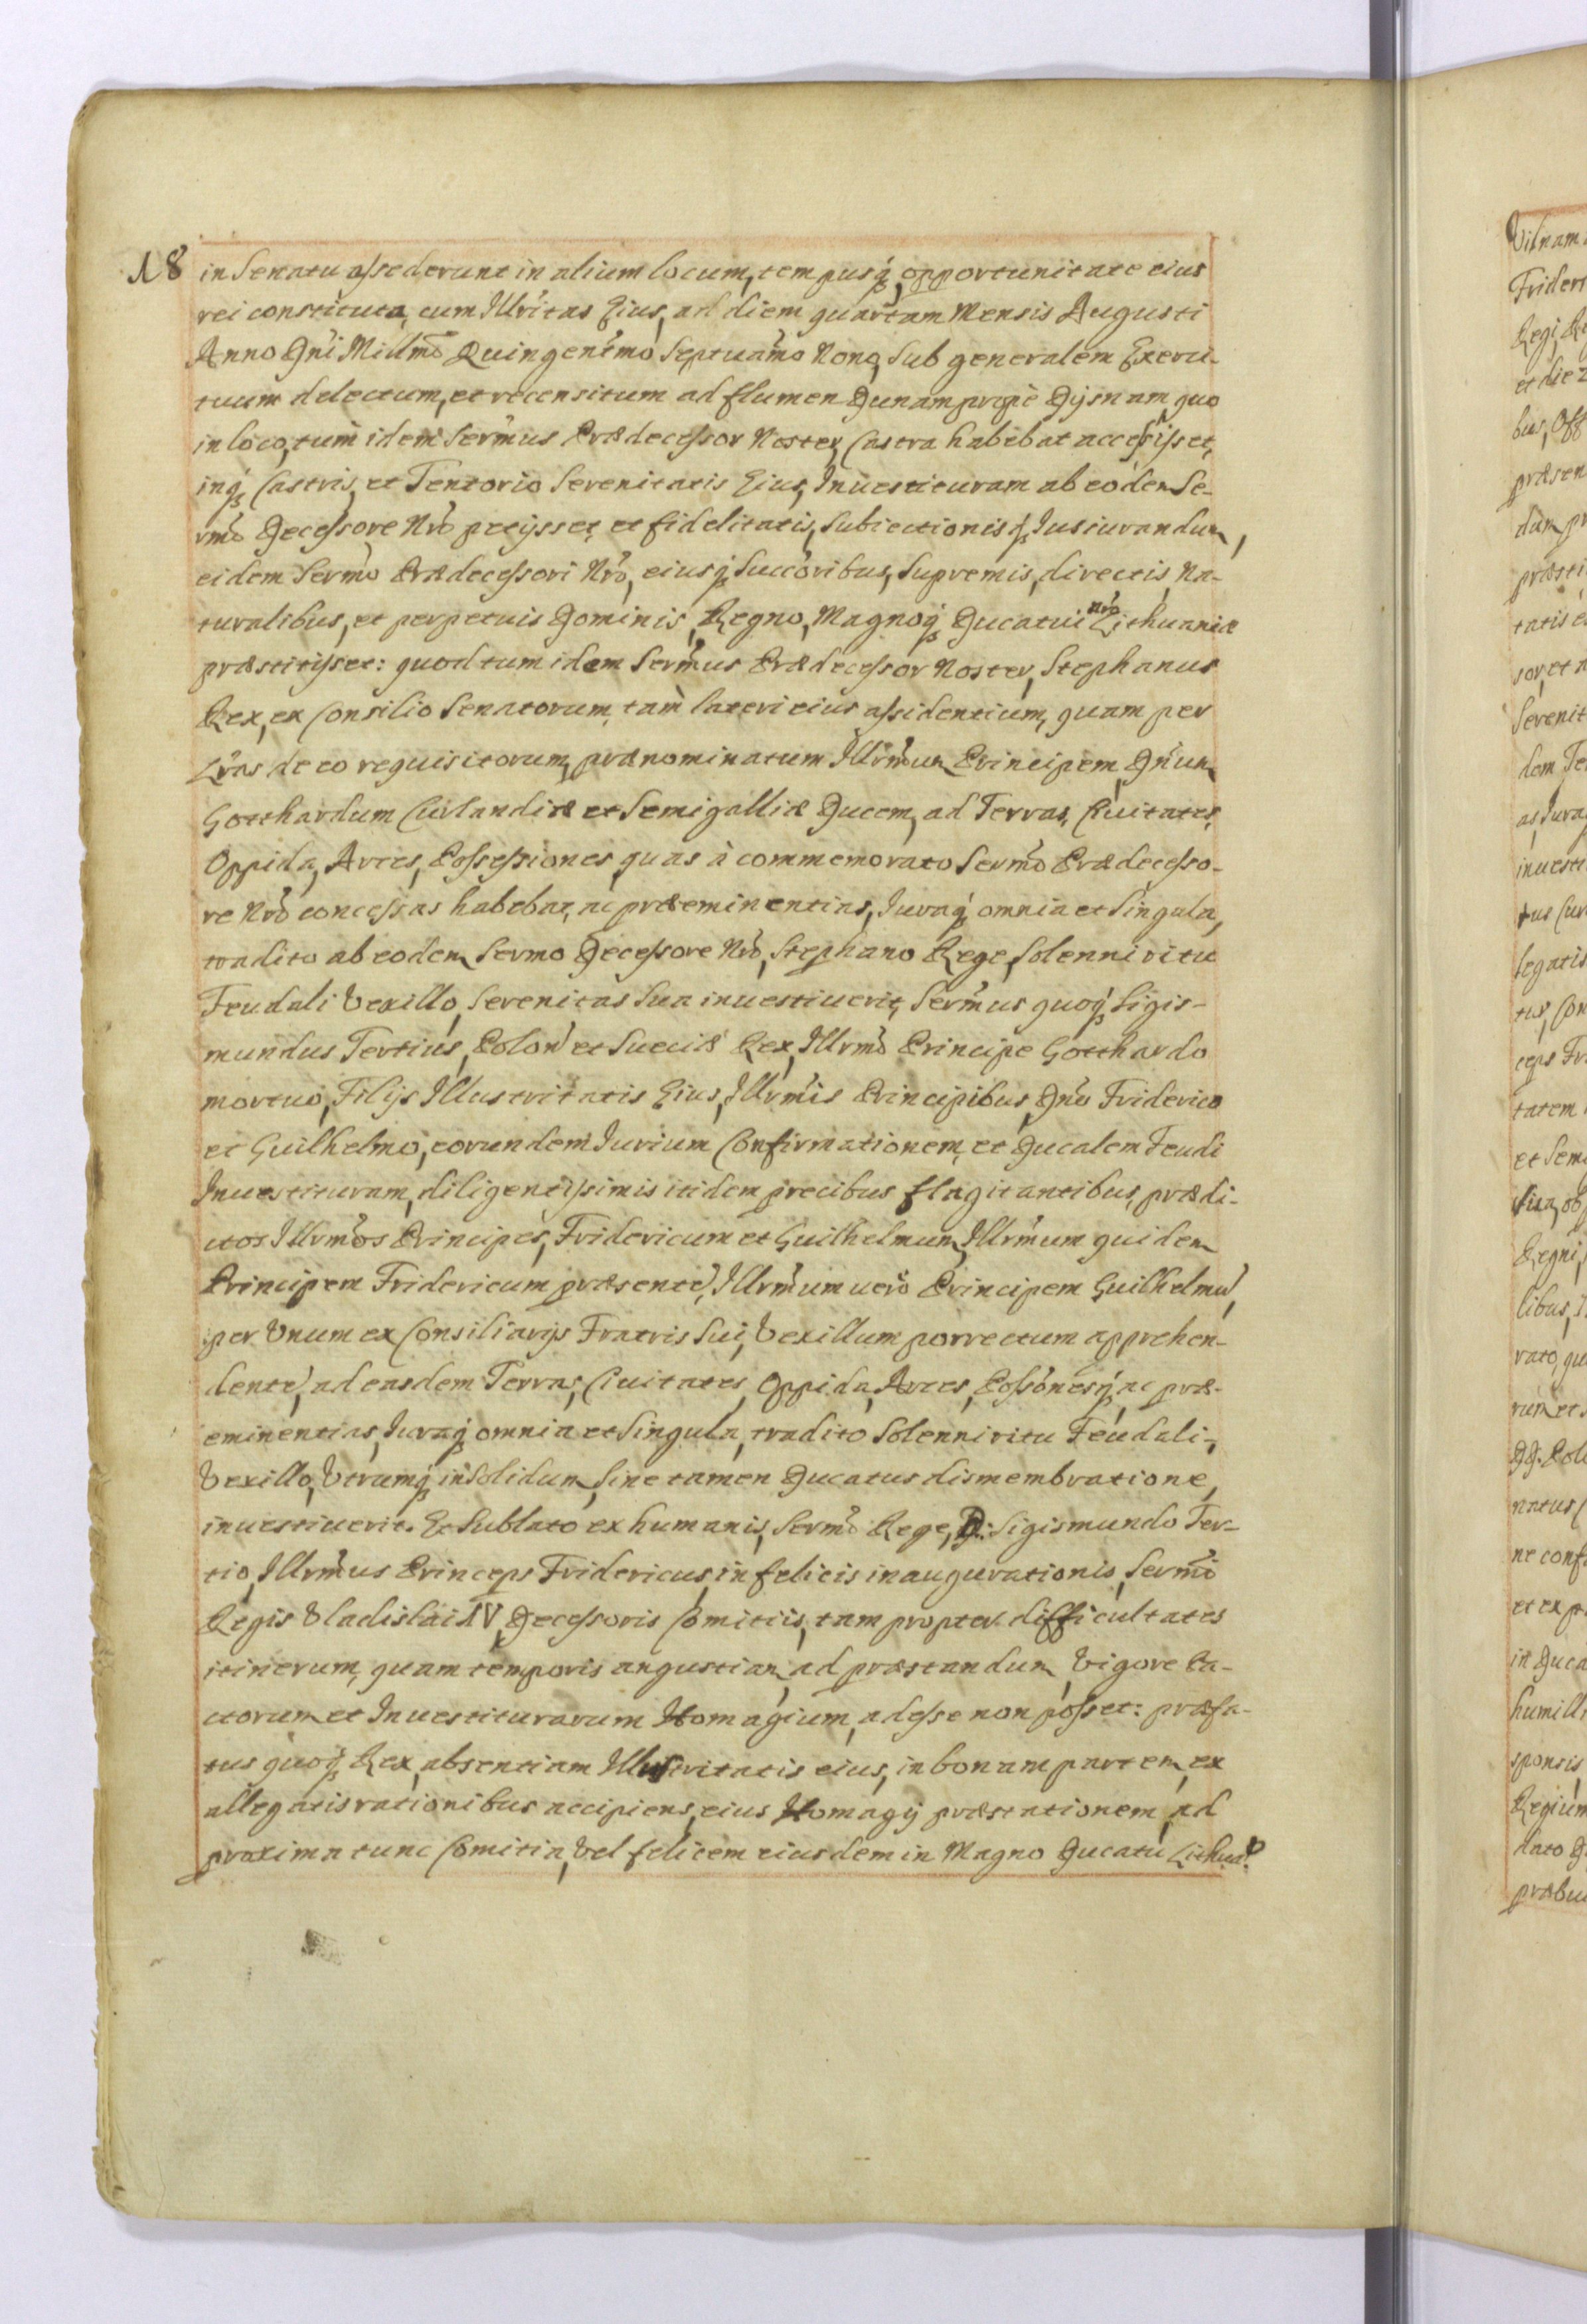 18 in Senatu assederunt in alium locum, tempusq́, opportunitate eius
rei constituta, cum Illr̃itas Eius, ad diem quartam Mensis Augusti
Anno Dn̄i Millm̃o Quingent̃mo Septuam̃o Nono, Sub generalem Exerci-
tuum delectum, et recensitum ad flumen Dunam propè Dÿsnam, quo
in loco, tum idem Serm̃us Prædecessor Noster, Castra habebat accessisset,
inq́ Castris, et Tentorio Serenitatis Eius, Inuestituram ab eodem Se-
rm̃o Decessore Nr̃o petijsset, et fidelitatis, Subiectionisq́ Iusiurandum,
eidem Serm̃o Prædecessori Nr̃o, eiusq́ Succ̃oribus, Supremis, directis, Na-
turalibus, et perpetuis Dominis, Regno, Magnoq́ Ducatui nr̃o Lithuaniæ
præstitisset: quod tum idem Serm̃us Prædecessor Noster, Stephanus
Rex, ex Consilio Senatorum, tam̀ lateri eius assidentium, quam per
Lr̃as de eo requisitorum, prænominatum Illr̃mum Principem, Dn̄um
Gotthardum Curlandiæ et Semigalliæ Ducem, ad Terras, Ciuitates,
Oppida, Arces, Possessiones, quas à commemorato Serm̃o Prædecesso-
re Nr̃o concessas habebat, ac præeminentias, Iuraq́ omnia et Singula,
tradito ab eodem Sermo Decessore Nr̃o, Stephano Rege, Solenni ritu
Feudali Vexillo, Serenitas Sua inuestiuerit, Serm̃us quoq́ Sigis-
mundus Tertius, Polon̄ et Sueciæ Rex, Illrm̃o Principe Gotthardo
mortuo, Filijs Illustritatis Eius, Illrm̃is Principibus, Dn̄o Friderico
et Guilhelmo, eorundem Iurium Confirmationem, et Ducalem Feudi
Inuestituram, diligentissimis itidem precibus flagitantibus, prædi-
ctos Illrm̃os Principes, Fridericum et Guilhelmum, Illrm̃um quidem
Principem Fridericum præsentẽ, Illrm̃um uerò Principem Guilhelmũ,
per Vnum ex Consiliarijs Fratris Sui, Vexillum porrectum apprehen-
dentẽ, ad easdem Terras, Ciuitates, Oppida, Arces, Poss̃onesq́, ac præ-
eminentias, Iuraq́ omnia et Singula, tradito Solenni ritu Feudali,
Vexillo, Vtrumq́ in Solidum, Sine tamen Ducatus dismembratione,
inuestiuerit. Et Sublato ex humanis, Serm̃o Rege, D: Sigismundo Ter-
tio, Illrm̃us Princeps Fridericus, in felicis inaugurationis, Serm̃i
Regis Vladislai IV, Decessoris Comitiis, tam propter difficultates
itinerum, quam temporis angustiam, ad præstandum, Vigore Pa-
ctorum et Inuestiturarum Homagium, adesse non posset: præfa-
tus quoq́ Rex, absentiam Illustritatis eius, in bonam partem, ex
allegatis rationibus accipiens, eius Homagÿ præstationem, ad
proxima tunc Comitia, Vel felicem eiusdem in Magno Ducatu Lithuañ: